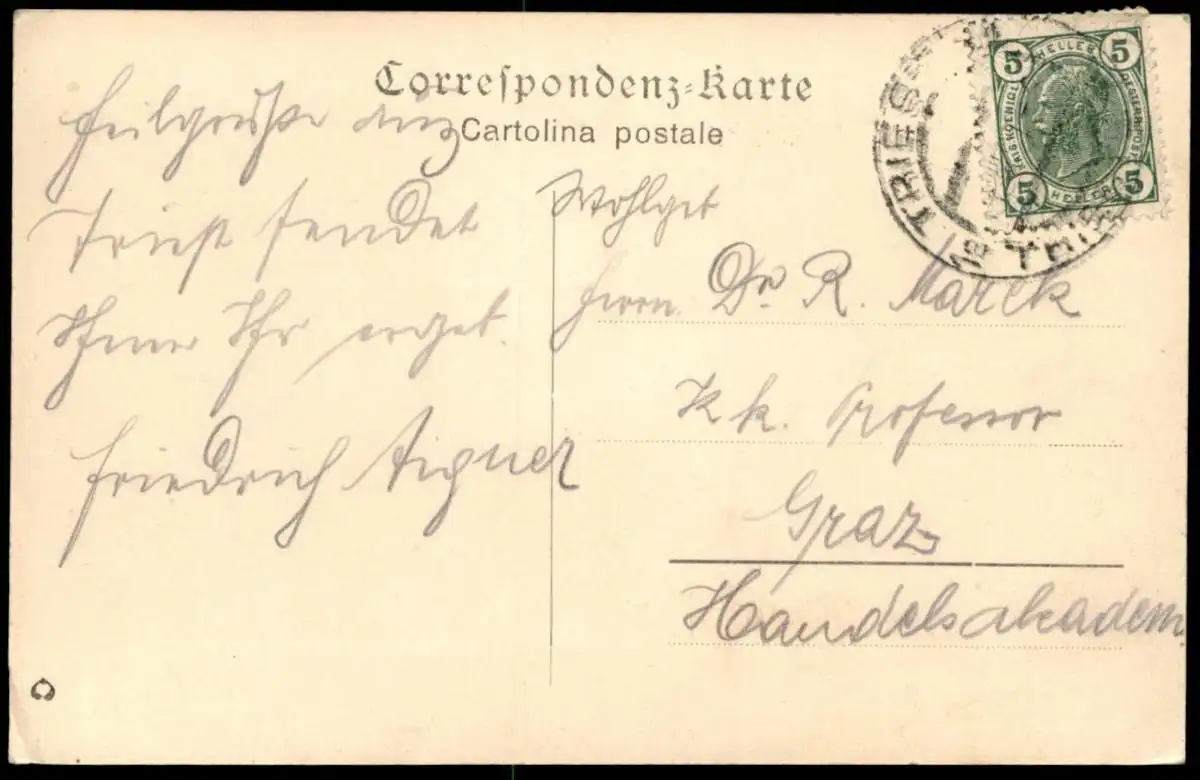 Correspondenz-Karte
Cartolina postale
Heilgrüße aus
Triest sendet
Ihnen Ihr ergeb.
Friedrich Aigner
Wohlgeb
Herrn Dr. R. Marek
K. k. Professor
Graz
Handelsakadem
TRIEST
TRIES
5 HELLER 5
KAIS. KOENIGL. OESTERR. POST
5 HELLER 5